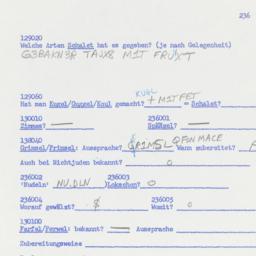 236
129020
Welche Arten Schalet hat es gegeben? (je nach Gelegenheit)
G3BAKN3R TAJX8 M1T FRUXT
KUGL
129060
Hat man Kugel/Guggel/Koul gemacht? + M1T FET = Schalet?
130010 236001
Zimmes? — Spätsel? —
138040
Grimsel/Primsel: Aussprache? GR1MSL Wann zubereitet?
Auch bei Nichtjuden bekannt? 0
236002 236003
"Nudeln" NU.DLN Lokschen? 0
236004 236005
Worauf gewälzt? Womit? 0
130100
Farfel/Ferwel: bekannt? — Aussprache
Zubereitungsweise